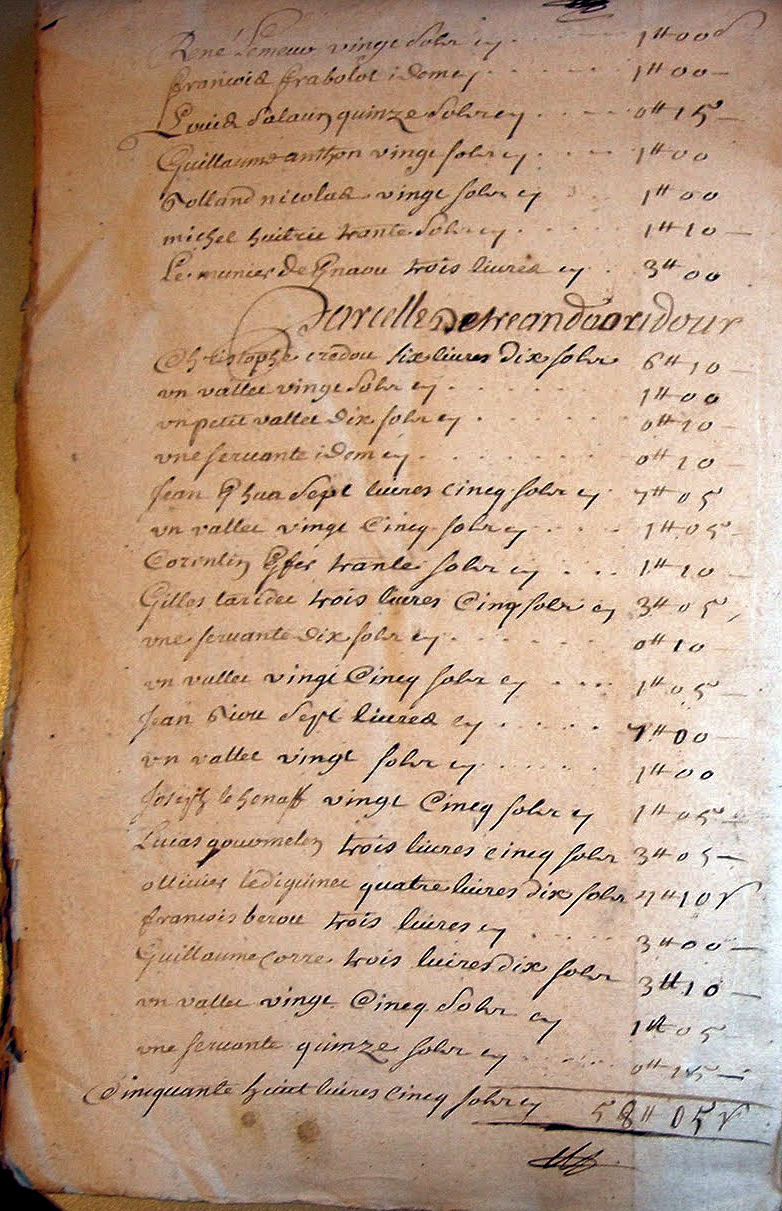 René Lemeur vingt solz cy 1# 00 s
francois frabolot idem cy 1# 00
Louis Salaun quinze solz cy 0# 15
Guillaume anthon vingt solz cy 1# 00
Rolland nicolas vingt solz cy 1# 00
michel trante solz cy 1# 10
Le munier de trois livres cy 3# 00
Parcelle De
Christophe credou six livres dix solz 6# 10
vn vallet vingt solz cy 1# 00
vn petit vallet dix solz cy 0# 10
vne servante idem cy 0# 10
Jean sept livres cincq solz cy 7# 05
vn vallet vingt cincq solz cy 1# 05
Corentin trante solz cy 1# 10
Gilles taridec trois livres cinq solz cy 3# 05
vne servante dix solz cy 0# 10
vn vallet vingt cincq solz cy 1# 05
Jean Riou sept livres cy 7# 00
vn vallet vingt solz cy 1# 00
Joseph le henaff vingt cincq solz cy 1# 05
Lucas gourmelen trois livres cincq solz 3# 05
ollivier lediguinec quatre livres dix solz 4# 10 s
francois berou trois livres cy 3# 00
Guillaume corre trois livres dix solz 3# 10
vn vallet vingt cincq solz cy 1# 05
vne servante quinze solz cy 0# 15
Cincquante huict livres cincq solz cy 58# 05 s